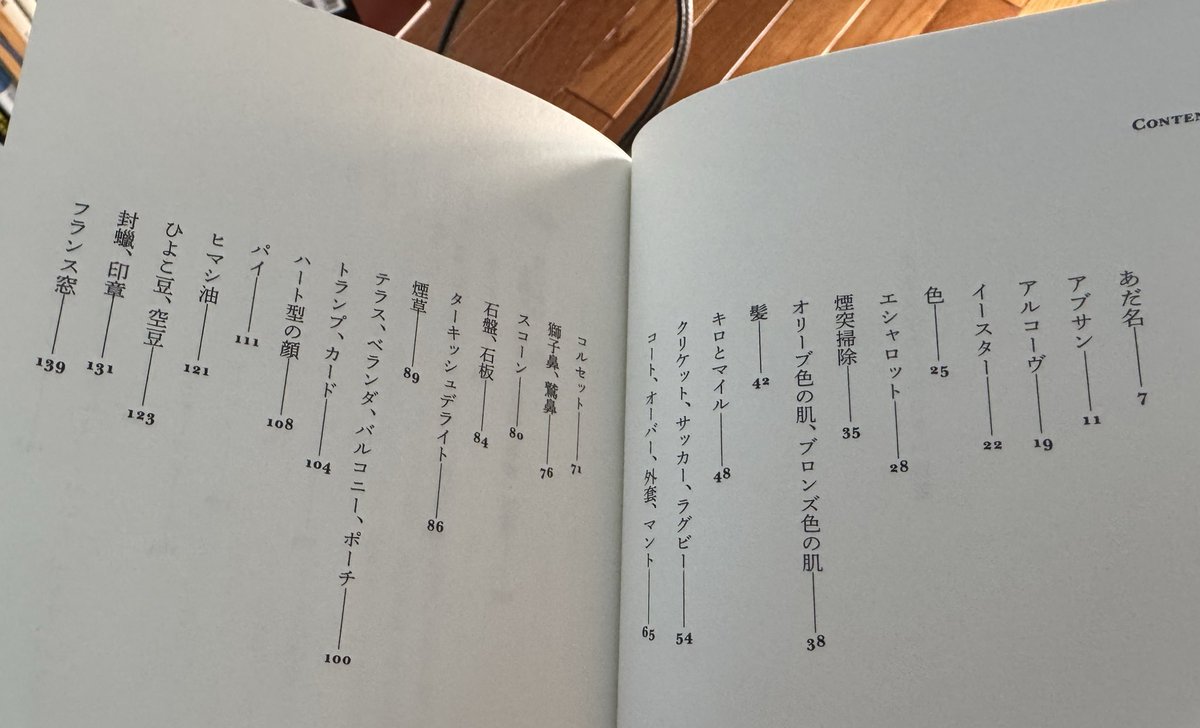 CONTEN
あだ名――7
アブサン――11
アルコーヴ――19
イースター――22
色――25
エシャロット――28
煙突掃除――35
オリーブ色の肌、ブロンズ色の肌――38
髪――42
キロとマイル――48
クリケット、サッカー、ラグビー――54
コート、オーバー、外套、マント――65
コルセット――71
獅子鼻、鷲鼻――76
スコーン――80
石盤、石板――84
ターキッシュデライト――86
煙草――89
テラス、ベランダ、バルコニー、ポーチ――100
トランプ、カード――104
ハート型の顔――108
パイ――111
ヒマシ油――121
ひよこ豆、空豆――123
封蠟、印章――131
フランス窓――139